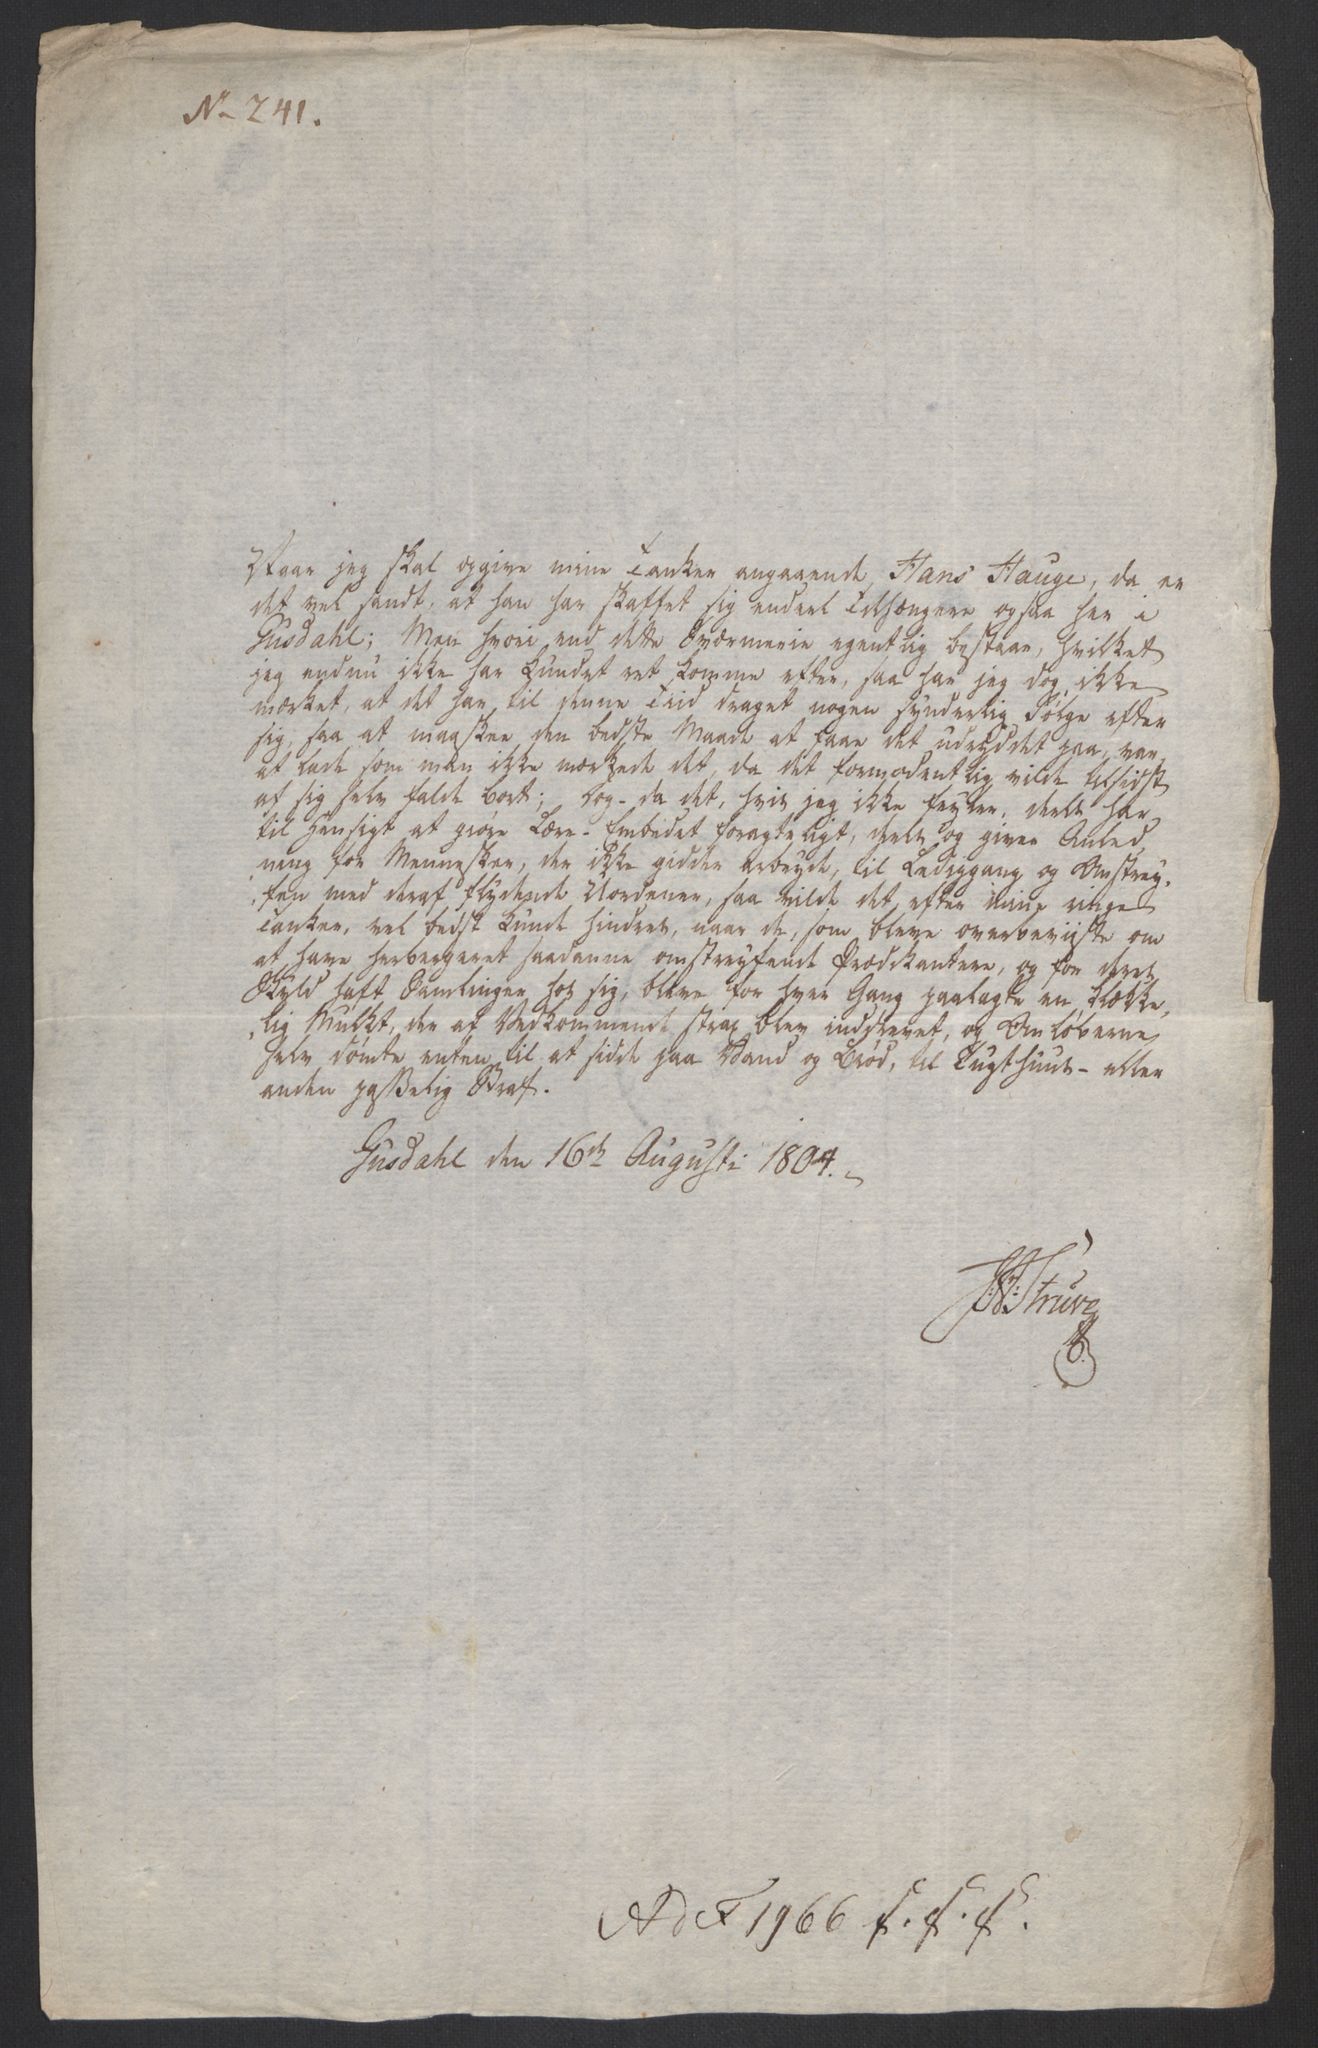 No 241.
Naar jeg skal opgive mine Tanker angaaende Hans Hauge, da er
det vel sandt, at han har skaffet sig endeel Tilhængere ogsaa her i
Gusdahl; Men hvori end dette Sværmerie egentlig bestaar, hvilket
jeg endnu ikke har kundet ret komme efter, saa har jeg dog ikke
mærket, at det har til denne Tiid draget nogen synderlig Følge efter
sig, saa at maaskee den bedste Maade at faae det udryddet paa, var,
at lade som man ikke mærkede det, da det formodentlig vilde tilsidst
af sig selv falde bort; Dog - da det, hvis jeg ikke feyler, deels har
til Hensigt at giøre Lære-Embedet foragteligt, deels og giver Anled,
ning for Mennesker, der ikke gidder arbeyde, til Lediggang og Omstrey,
fen med deraf flydende Uordener, saa vilde det efter mine ringe
Tanker, vel bedst kunde hindres, naar de, som bleve overbeviiste om
at have herbergeret saadanne omstreyfende Prædikantere, og for deres
Skyld haft Samlinger hos sig, bleve for hver Gang paalagte en klække,
lig Mulkt, der af Vedkommende strax blev inddrevet, og Omløberne
selv dømte enten til at sidde paa Vand og Brød, til Tugthuus- eller
anden passelig Straf.
Gusdahl den 16de Augusti 1804.
Struve
Ad F 1966 f. f. f.